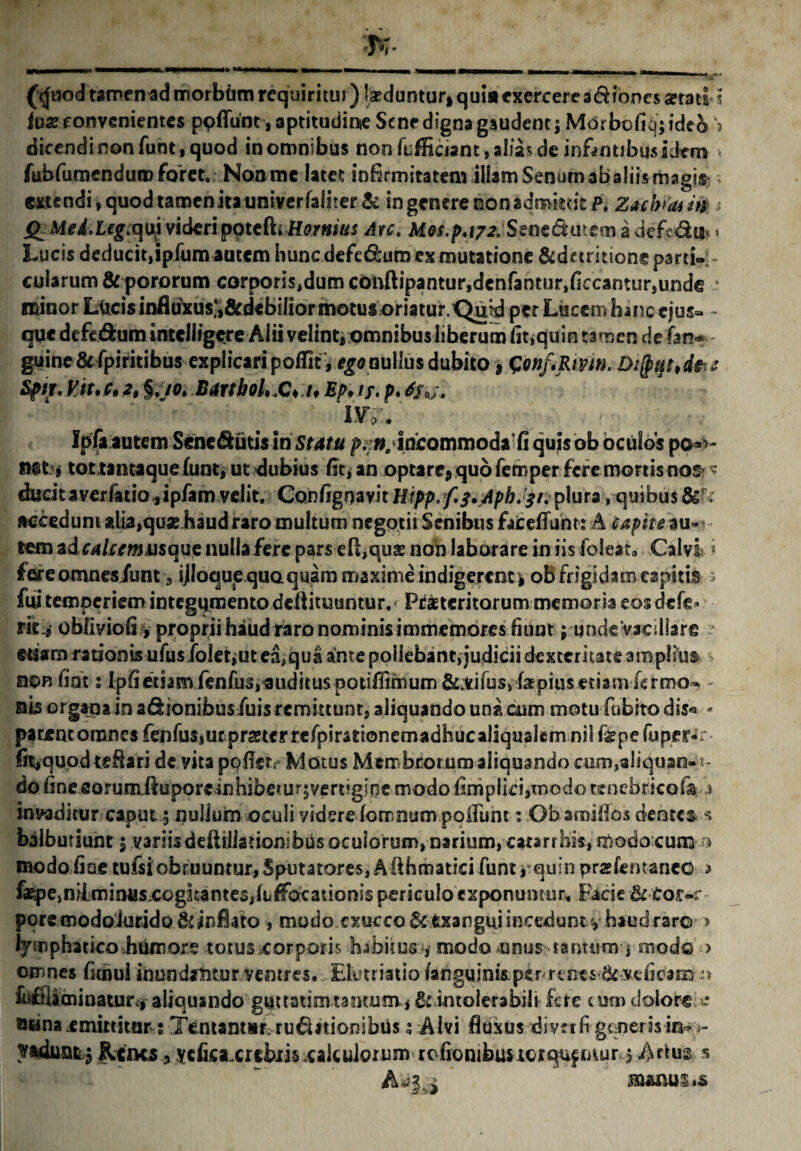 (quod tamen ad morbūm requiritur) læduntur, quia exercere actiones ætati
suæ convenientes possunt, aptitudine Sene digna gaudent; Morbosiq; ideò
dicendi non sunt, quod in omnibus non sufficiant, aliàs de infantibus idem
subsumendum foret. Non me latet infirmitatem illam Senum ab aliis magis
extendi, quod tamen ita universaliter & in genere non admittit P. Zachias in
Q. Med. Leg. qui videri potest. Hornius Arc. Mos. p. 172. Senectutem à defectu
Lucis deducit, ipsum autem hunc defectum ex mutatione & detritione parti-
cularum & pororum corporis, dum constipantur, densantur, siccantur, unde
minor Lucis influxus, & debilior motus oriatur. Quid per Lucem hanc ejus-
que defectum intelligere Alii velint, omnibus liberum sit, quin tamen de san-
guine & spiritibus explicari possit, ego nullus dubito, Conf. Rivin. Disput. de
Spir. Vit. c. 2, §. 10. Barthol. C. 1. Ep. 15. p.
IV.
Ipsa autem Senectutis in Statu p. n. incommoda si quis ob oculos po-
nat, tot tantaque sunt, ut dubius sit, an optare, quò semper fere mortis nos
ducit aversatio, ipsam velit. Consignavit Hipp. s. 3. Aph. 31. plura, quibus &
accedunt alia, quæ haud raro multum negotii Senibus facessunt: A capite au-
tem ad calcem usque nulla fere pars est, quæ non laborare in iis soleat. Calvi
fere omnes sunt, illoque quo quàm maximè indigerent, ob frigidam capitis
sui temperiem integumento destituuntur. Præteritorum memoria eos dese-
rit, obliviosi, proprii haud raro nominis immemores fiunt; unde vacillare
etiam rationis usus solet, ut eâ, quâ ante pollebant, judicii dexteritate amplius
non sint: Ipsi etiam sensus, auditus potissimum & visus, sæpius etiam sermo-
nis organa in actionibus suis remittunt, aliquando unà cum motu subito dis-
parent omnes sensus, ut præter respirationem adhuc aliqualem nil sæpe super-
sit, quod testari de vita posset. Motus Membrorum aliquando cum, aliquan-
do sine eorum stupore inhibetur; vertigine modo simplici, modo tenebricosa
invaditur caput; nullum oculi videre somnum possunt: Ob amissos dentes
balbutiunt; variis destillationibus oculorum, narium, catarrhis, modo cum
modo sine tussi obruuntur, Sputatores, Asthmatici sunt, quin præsentaneo
sæpe, nil minus cogitantes, suffocationis periculo exponuntur. Facie & cor-
pore modo lurido & inflato, modo exucco & exangui incedunt, haud raro
lymphatico humore totus corporis habitus, modo unus tantum, modo
omnes simul inundantur ventres. Elutriatio sanguinis per renes & veficam
sufflaminatur, aliquando guttatim tantum, & intolerabili fere cum dolore
urina emittitur: Tentantur ructationibus: Alvi fluxus diversi generis in-
vadunt; Renes, vesica crebris calculorum rosionibus torquentur; Artus
A 3 manus